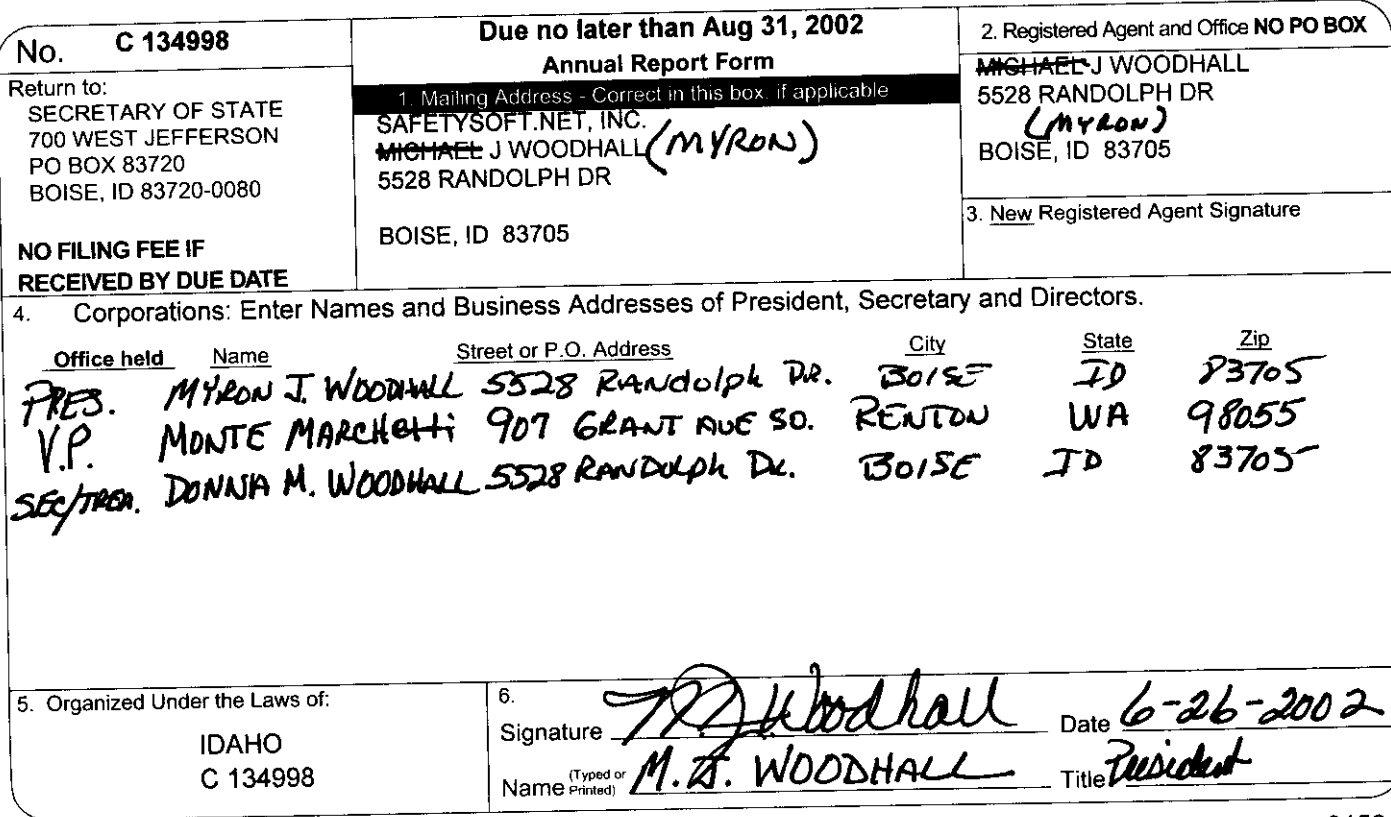 No. C 134998
Return to:
SECRETARY OF STATE
700 WEST JEFFERSON
PO BOX 83720
BOISE, ID 83720-0080
NO FILING FEE IF
RECEIVED BY DUE DATE
Due no later than Aug 31, 2002
Annual Report Form
1. Mailing Address - Correct in this box, if applicable
SAFETYSOFT.NET, INC.
MICHAEL J WOODHALL (MYRON)
5528 RANDOLPH DR
BOISE, ID 83705
2. Registered Agent and Office NO PO BOX
MICHAEL J WOODHALL
5528 RANDOLPH DR
(MYRON)
BOISE, ID 83705
3. New Registered Agent Signature
4. Corporations: Enter Names and Business Addresses of President, Secretary and Directors.
Office held Name Street or P.O. Address City State Zip
PRES. MYRON J. WOODHALL 5528 RANdolph DR. BOISE ID 83705
V.P. MONTE MARCHetti 907 GRANT AVE SO. RENTON WA 98055
SEC/TREA. DONNA M. WOODHALL 5528 RANDOLph DR. BOISE ID 83705
5. Organized Under the Laws of:
IDAHO
C 134998
6.
Signature M J Woodhall Date 6-26-2002
Name (Typed or Printed) M. J. WOODHALL Title President